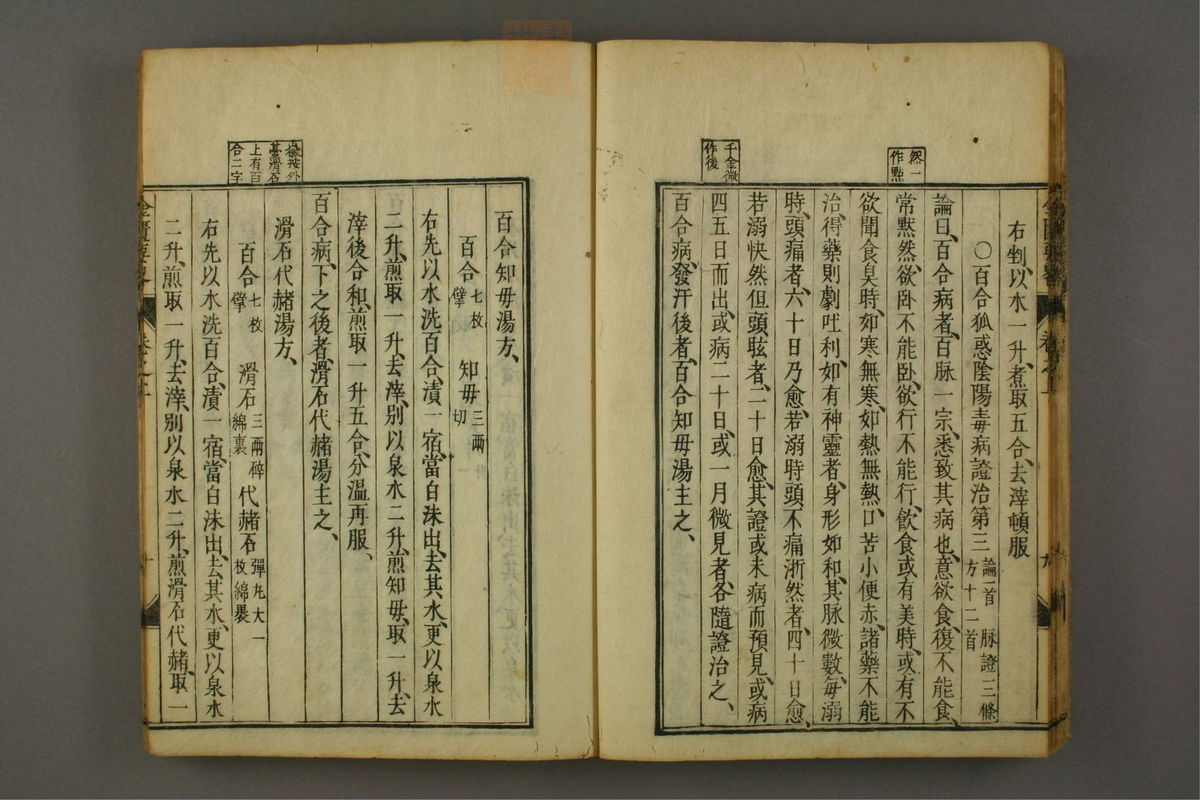 右剉、以水一升、煮取五合、去滓頓服
〇百合狐惑陰陽毒病證治第三 論一首 脉證三條 方十二首
論曰、百合病者、百脉一宗、悉致其病也、意欲食、復不能食、
常默然、欲卧不能卧、欲行不能行、飲食或有美時、或有不
欲聞食臭時、如寒無寒、如熱無熱、口苦小便赤、諸藥不能
治、得藥則劇吐利、如有神靈者、身形如和、其脉微數、每溺
時、頭痛者、六十日乃愈、若溺時頭不痛淅然者、四十日愈、
若溺快然但頭眩者、二十日愈、其證或未病而預見、或病
四五日而出、或病二十日、或一月微見者、各隨證治之、
百合病、發汗後者、百合知毋湯主之、
然一作默
千金微作後
百合知毋湯方、
百合 七枚擘 知毋 三兩切
右先以水洗百合、漬一宿、當白沫出、去其水、更以泉水
二升、煎取一升、去滓、別以泉水二升、煎知毋、取一升、去
滓後合和、煎取一升五合、分溫再服、
百合病、下之後者、滑石代赭湯主之、
滑石代赭湯方、
百合 七枚擘 滑石 三兩碎綿裹 代赭石 彈丸大一枚綿裹
右先以水洗百合、漬一宿、當白沫出、去其水、更以泉水
二升、煎取一升、去滓、別以泉水二升、煎滑石代赭、取一
按外臺滑石上有百合二字